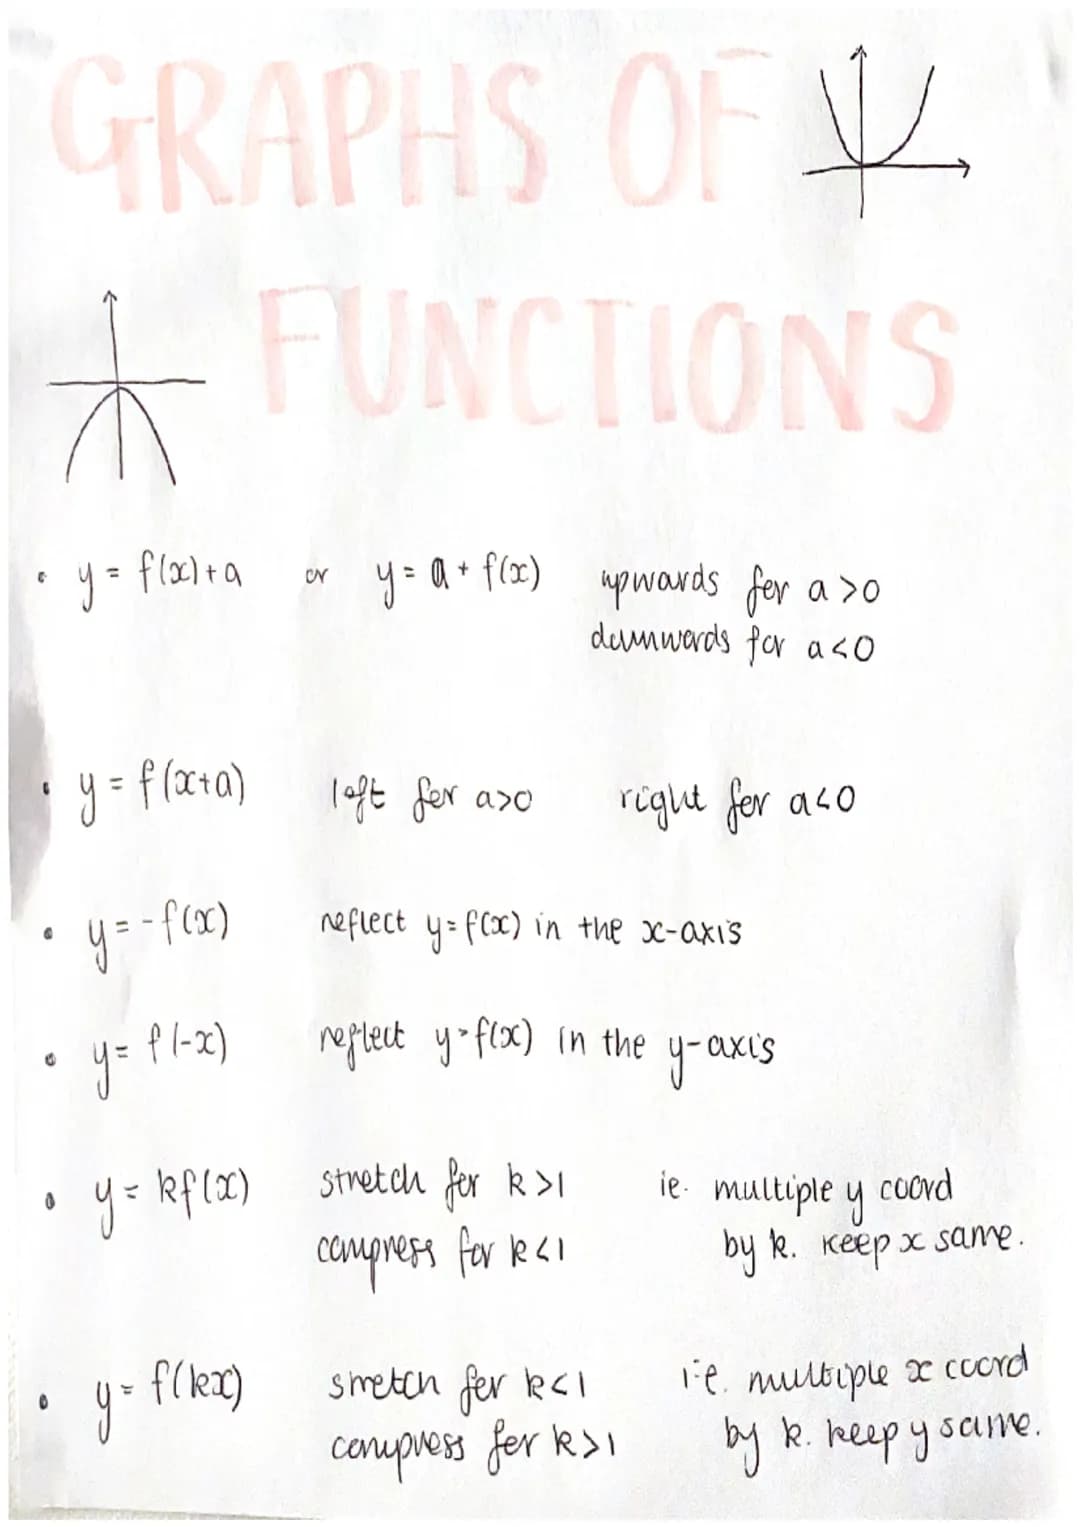 GRAPHS OF
FUNCTIONS
• y = f(x) + a or y = a + f(x) upwards for a > 0
downwards for a < 0
• y = f(x+a) left for a>0 right for a<0
• y = -f(x) reflect y = f(x) in the x-axis
• y = f(-x) reflect y = f(x) in the y-axis
• y = kf(x) stretch for k > 1 ie. multiple y coord
compress for k < 1 by k. keep x same.
• y = f(kx) stretch for k < 1 i.e. multiple x coord
compress for k > 1 by k. keep y same.